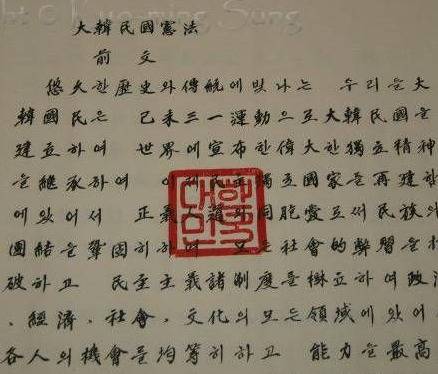 ht © Kuo-ming Sung
大韓民國憲法
前 文
悠久한 歷史와 傳統에 빛나는 우리들 大
韓國民은 己未三一運動으로 大韓民國을
建立하여 世界에 宣布한 偉大한 獨立精神
을 繼承하여 이제 民主獨立國家를 再建함
에 있어서 正義人道와 同胞愛로써 民族의
團結을 鞏固히하며 모든 社會的 弊習을 打
破하고 民主主義諸制度를 樹立하여 政治
、經濟、社會、文化의 모든 領域에 있어
各人의 機會를 均等히하고 能力을 最高
대한민국